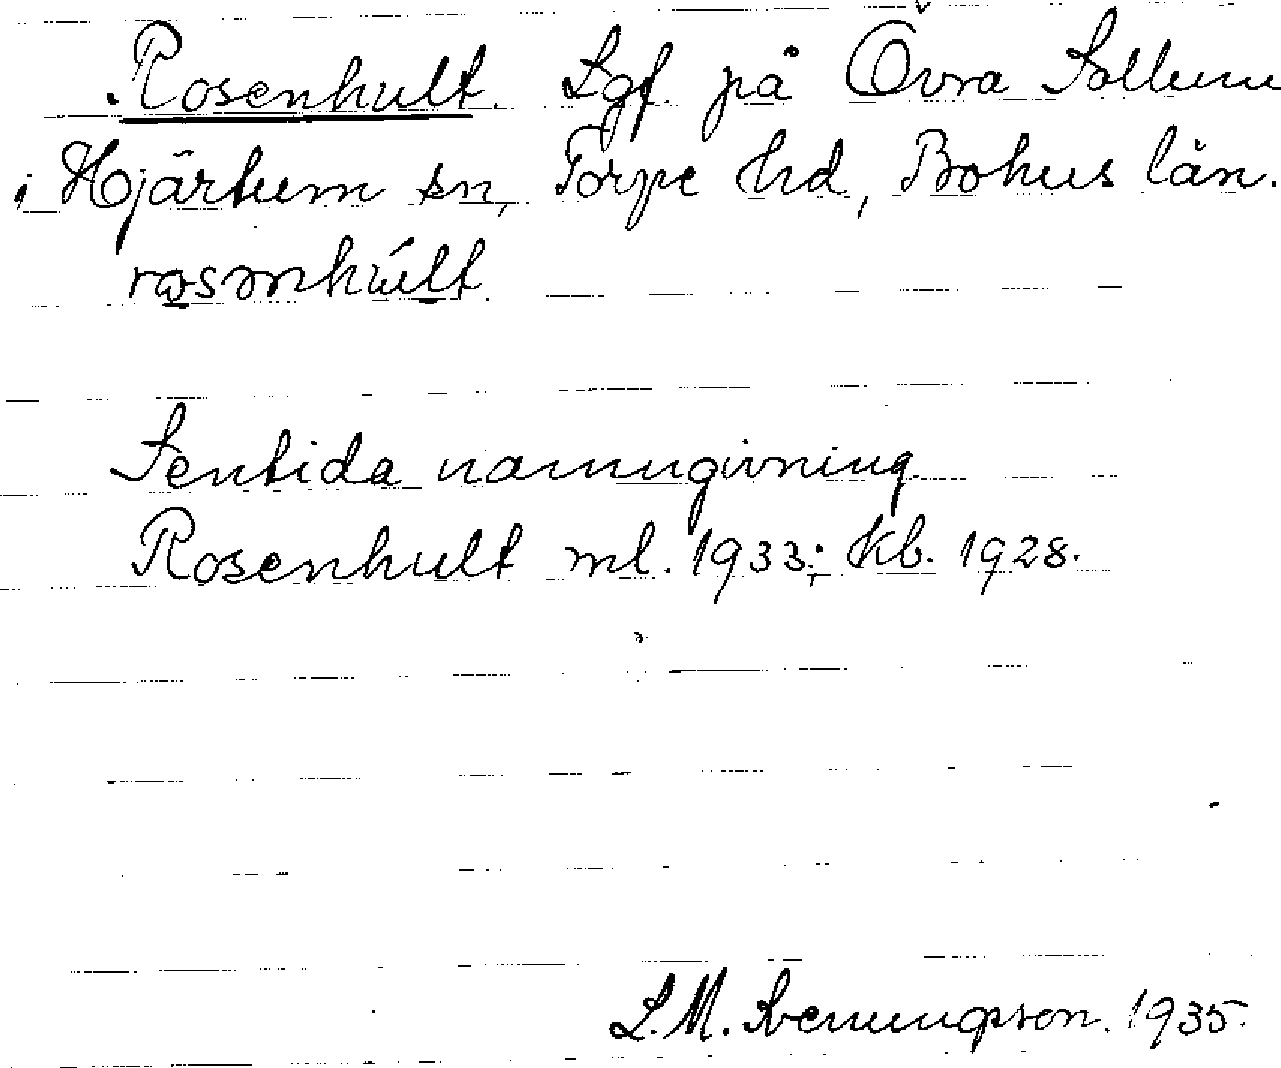 Rosenhult. Lgf. på Övra Sollum
i Hjärtum sn, Torpe hd, Bohus län.
Sentida namngivning
Rosenhult ml. 1933; kb. 1928.
L. M. Svenungsson. 1935.